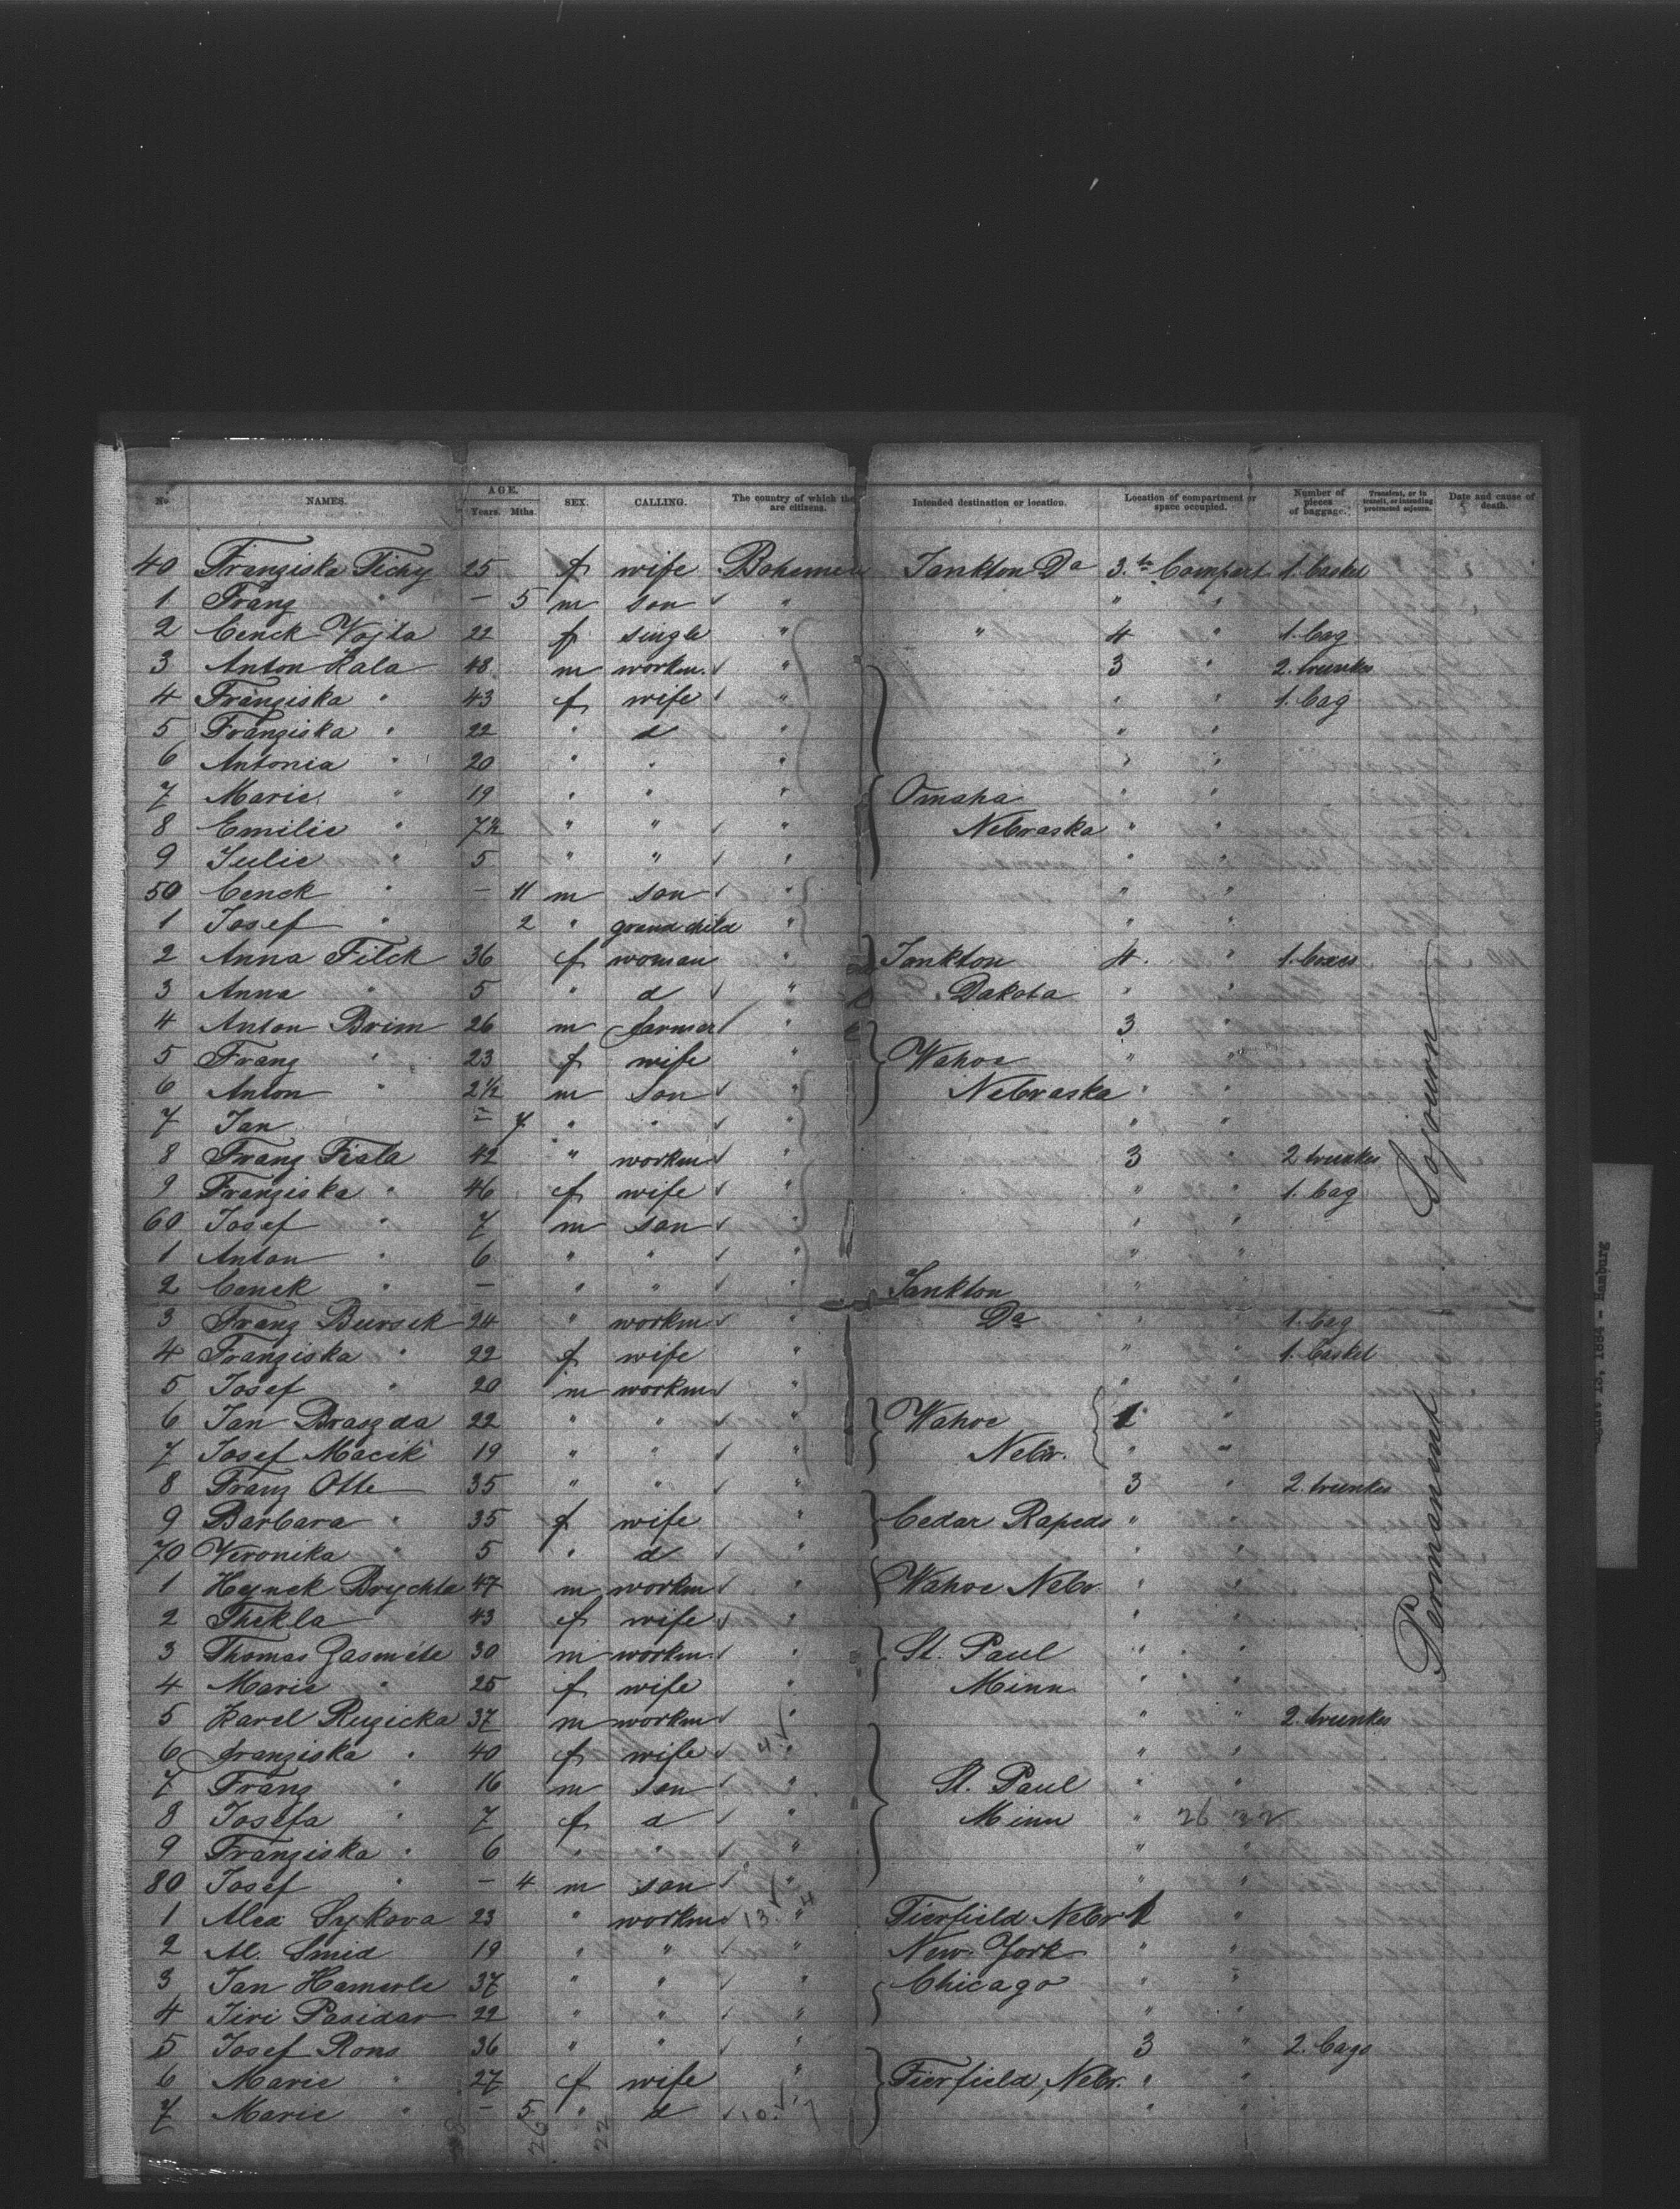 No NAMES. AGE. Years. Mths. SEX. CALLING. The country of which they are citizens. Intended destination or location. Location of compartment or space occupied. Number of pieces of baggage. Transient, or in transit, or intending protracted sojourn. Date and cause of death.
40 Franziska Tichy 25 f wife Bohemen Jankton Da 3.te Compart. 1. basket
1 Franz " – 5 m son " " "
2 Cenek Vojta 22 f single " " 4 " 1. bag
3 Anton Kala 48 m workm. " 3 " 2. trunks
4 Franziska " 43 f wife " " " 1. bag
5 Franziska " 22 " d " " "
6 Antonia " 20 " " " " "
7 Marie " 19 " " " Omaha " "
8 Emilie " 7½ " " " Nebraska " "
9 Julie " 5 " " " " "
50 Cenek " – 11 m son " " "
1 Josef " 2 " grand child " " "
2 Anna Filck 36 f woman " Jankton 4. " 1. boxes
3 Anna " 5 " d " Dakota " "
4 Anton Brim 26 m farmer " 3 "
5 Franz " 23 f wife " Wahoe " "
6 Anton " 2½ m son " Nebraska " "
7 Jan – 7 " " " " "
8 Franz Fiala 42 " workm " 3 " 2 trunks
9 Franziska " 46 f wife " " " 1. bag
60 Josef " 7 m son " " "
1 Anton " 6 " " " " "
2 Cenek " – " " " Jankton " "
3 Franz Bursek 24 " workm " Da " " 1. bag
4 Franziska " 22 f wife " " " 1. basket
5 Josef " 20 m workm " " "
6 Jan Braszda 22 " " " Wahoe 1 "
7 Josef Macik 19 " " " Nebr. " "
8 Franz Otte 35 " " " 3 " 2. trunks
9 Barbara " 35 f wife " Cedar Rapeds " "
70 Veronika " 5 " d " " "
1 Hynek Brychta 47 m workm " Wahoe Nebr. " "
2 Thekla " 43 f wife " " "
3 Thomas 30 m workm. " St. Paul " "
4 Marie " 25 f wife " Minn. " "
5 Karel Ruzicka 37 m workm " " " 2. trunks
6 Franziska " 40 f wife 4 " " "
7 Franz " 16 m son " St. Paul " "
8 Josefa " 7 f d " Minn " 26
9 Franziska " 6 " " " " "
80 Josef " – 4 m son " " "
1 Alex Sykova 23 " workm 13 " 4 Fierfield Nebr 1 "
2 Al. Smid 19 " " " New York " "
3 Jan Hamerle 37 " " " Chicago " "
4 Jiri Pasidar 22 " " " " "
5 Josef Rons 36 " " " 3 " 2. bags
6 Marie " 27 f wife " Fierfield, Nebr. " "
7 Marie " – 5 " d 10 " "
26 22
Permanent Sojourn
13, 1884 – Hamburg